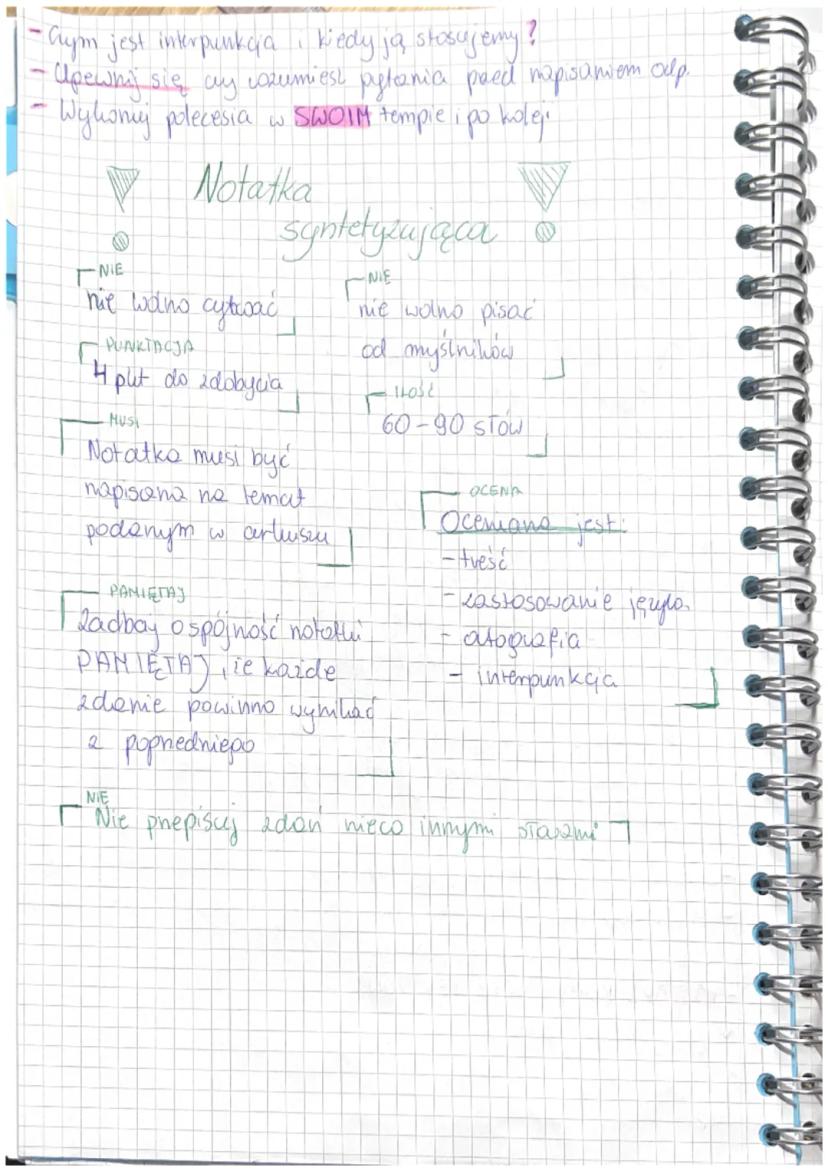 - Czym jest interpunkcja i kiedy ją stosujemy?
- Upewnij się czy rozumiesz pytania przed napisaniem odp.
- Wykonuj polecesia w SWOIM tempie i po kolej
Notatka
syntetyzująca
NIE
nie wolno cytować
NIE
nie wolno pisac
od myślników
PUNKTACJA
4 pkt do zdobycia
ILOŚĆ
60-90 słów
MUSI
Notatka musi być
napisana na temat
podanym w arkuszu
OCENA
Oceniana jest:
- treść
- zastosowanie języka
- ortografia
- interpunkcja
PAMIĘTAJ
Zadbaj o spójność notatki
PAMIĘTAJ, że każde
zdanie powinno wynikać
z poprzedniego
NIE
Nie przepisuj zdań nieco innymi słowami